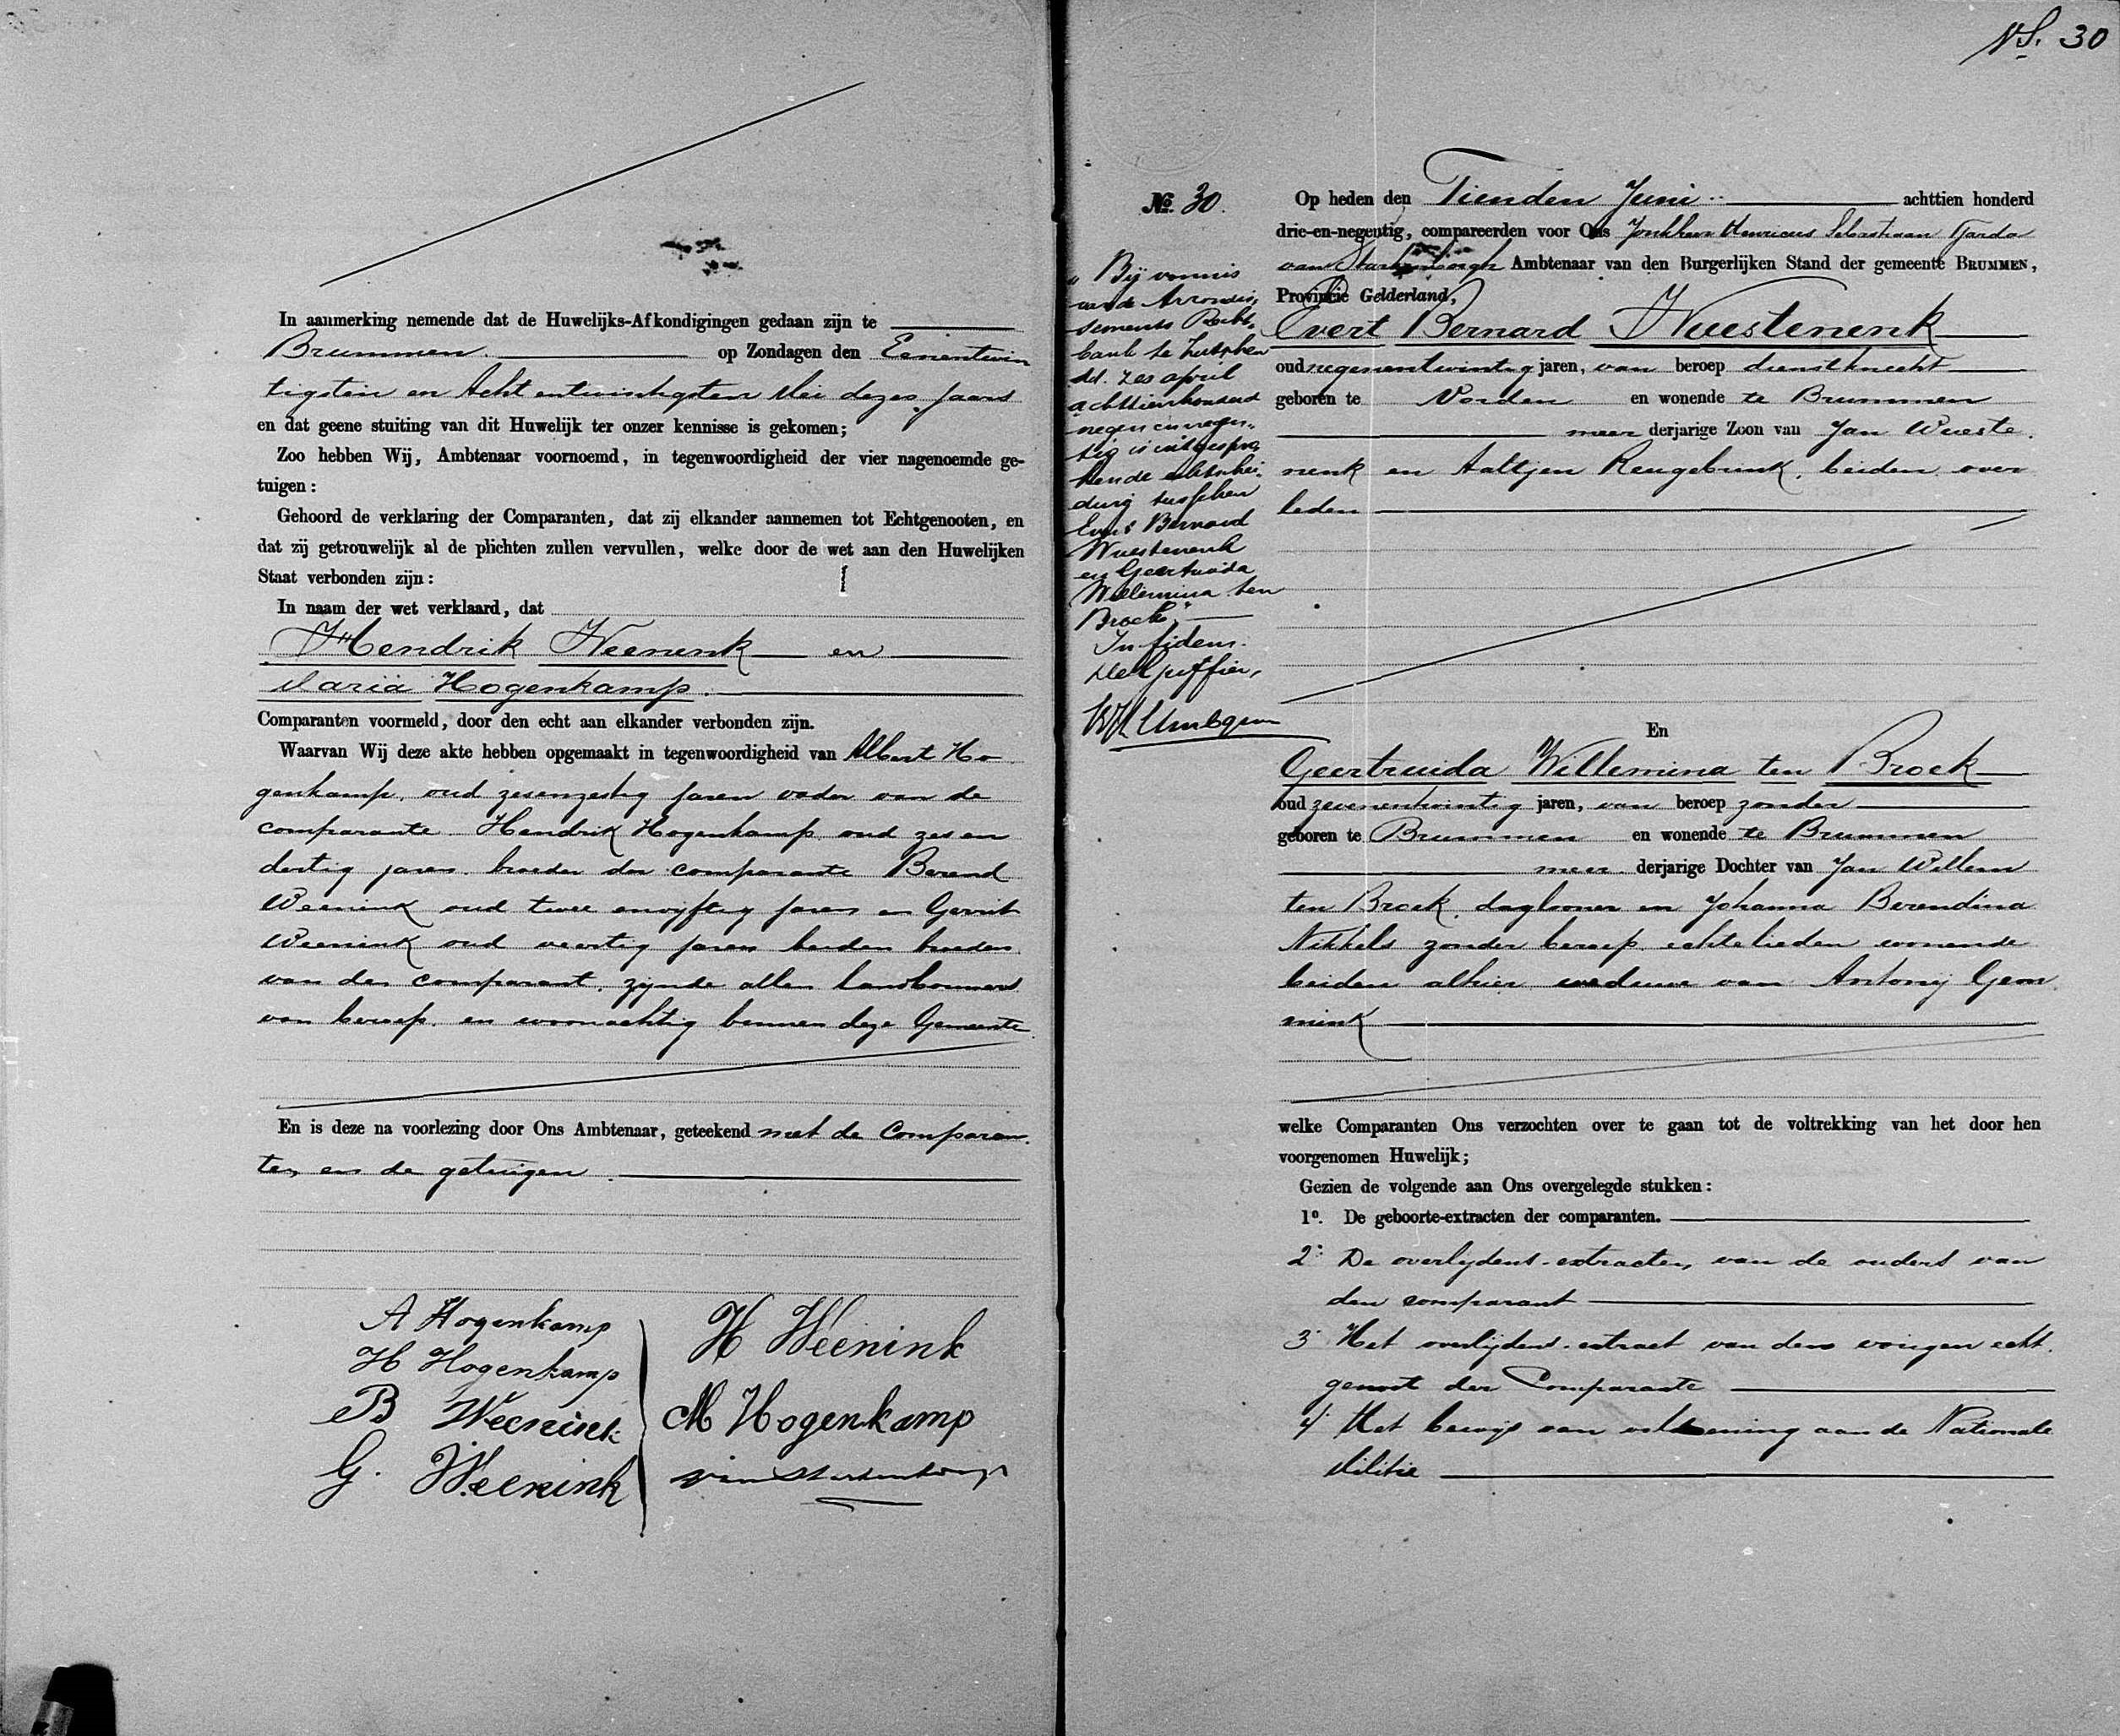 In aanmerking nemende dat de Huwelijks-Afkondigingen gedaan zijn te
Brummen op Zondagen den Eenentwin
tigsten en Acht entwintigsten Mei dezes jaars
en dat geene stuiting van dit Huwelijk ter onzer kennisse is gekomen;
Zoo hebben Wij, Ambtenaar voornoemd, in tegenwoordigheid der vier nagenoemde ge-
tuigen:
Gehoord de verklaring der Comparanten, dat zij elkander aannemen tot Echtgenooten, en
dat zij getrouwelijk al de plichten zullen vervullen, welke door de wet aan den Huwelijken
Staat verbonden zijn:
In naam der wet verklaard, dat
Hendrik Weenenk en
Maria Hogenkamp.
Comparanten voormeld, door den echt aan elkander verbonden zijn.
Waarvan Wij deze akte hebben opgemaakt in tegenwoordigheid van Albert Ho
genkamp, oud zesenzestig jaren vader van de
comparante Hendrik Hogenkamp oud zes en
dertig jaren broeder der comparante Berend
Weenink oud twee envijftig jaren en Gerrit
Weenink oud veertig jaren beiden broeders
van den comparant, zijnde allen landbouwers
van beroep, en woonachtig binnen deze Gemeente
En is deze na voorlezing door Ons Ambtenaar, geteekend met de Comparan
ten en de getuigen.
A Hogenkamp
H Hogenkamp
B Weenink
G. Weenink
H Weenink
M Hogenkamp
van Starkenborgh
No. 30
No. 30.
„Bij vonnis
van de Arrondis-
sements Recht-
bank te Zutphen
dd. zes april
achttienhonderd
negen en negen-
tig is uitgespro-
ken de echtschei-
ding tusschen
Evert Bernard
Wuestenenk
en Geertruida
Willemina ten
Broek."
In fidem.
De Griffier,
Op heden den Tienden Juni achttien honderd
drie-en-negentig, compareerden voor Ons Jonkheer Henricus Sebastiaan Tjarda
van Starkenborgh Ambtenaar van den Burgerlijken Stand der gemeente BRUMMEN,
Provincie Gelderland,
Evert Bernard Wuestenenk
oud negenentwintig jaren, van beroep dienstknecht
geboren te Vorden en wonende te Brummen
meer derjarige Zoon van Jan Wueste
nenk en Aaltjen Reugebrink, beiden over
leden
En
Geertruida Willemina ten Broek
oud zevenentwintig jaren, van beroep zonder
geboren te Brummen en wonende te Brummen
meer derjarige Dochter van Jan Willem
ten Broek, daglooner en Johanna Berendina
Nikkels zonder beroep echtelieden wonende
beiden alhier weduwe van Antonij Geur
mink
welke Comparanten Ons verzochten over te gaan tot de voltrekking van het door hen
voorgenomen Huwelijk;
Gezien de volgende aan Ons overgelegde stukken:
1o. De geboorte-extracten der comparanten.
2o De overlijdens-extracten van de ouders van
den comparant
3o Het overlijdens-extract van den vorigen echt
genoot der Comparante
4o Het bewijs van voldoening aan de Nationale
Militie